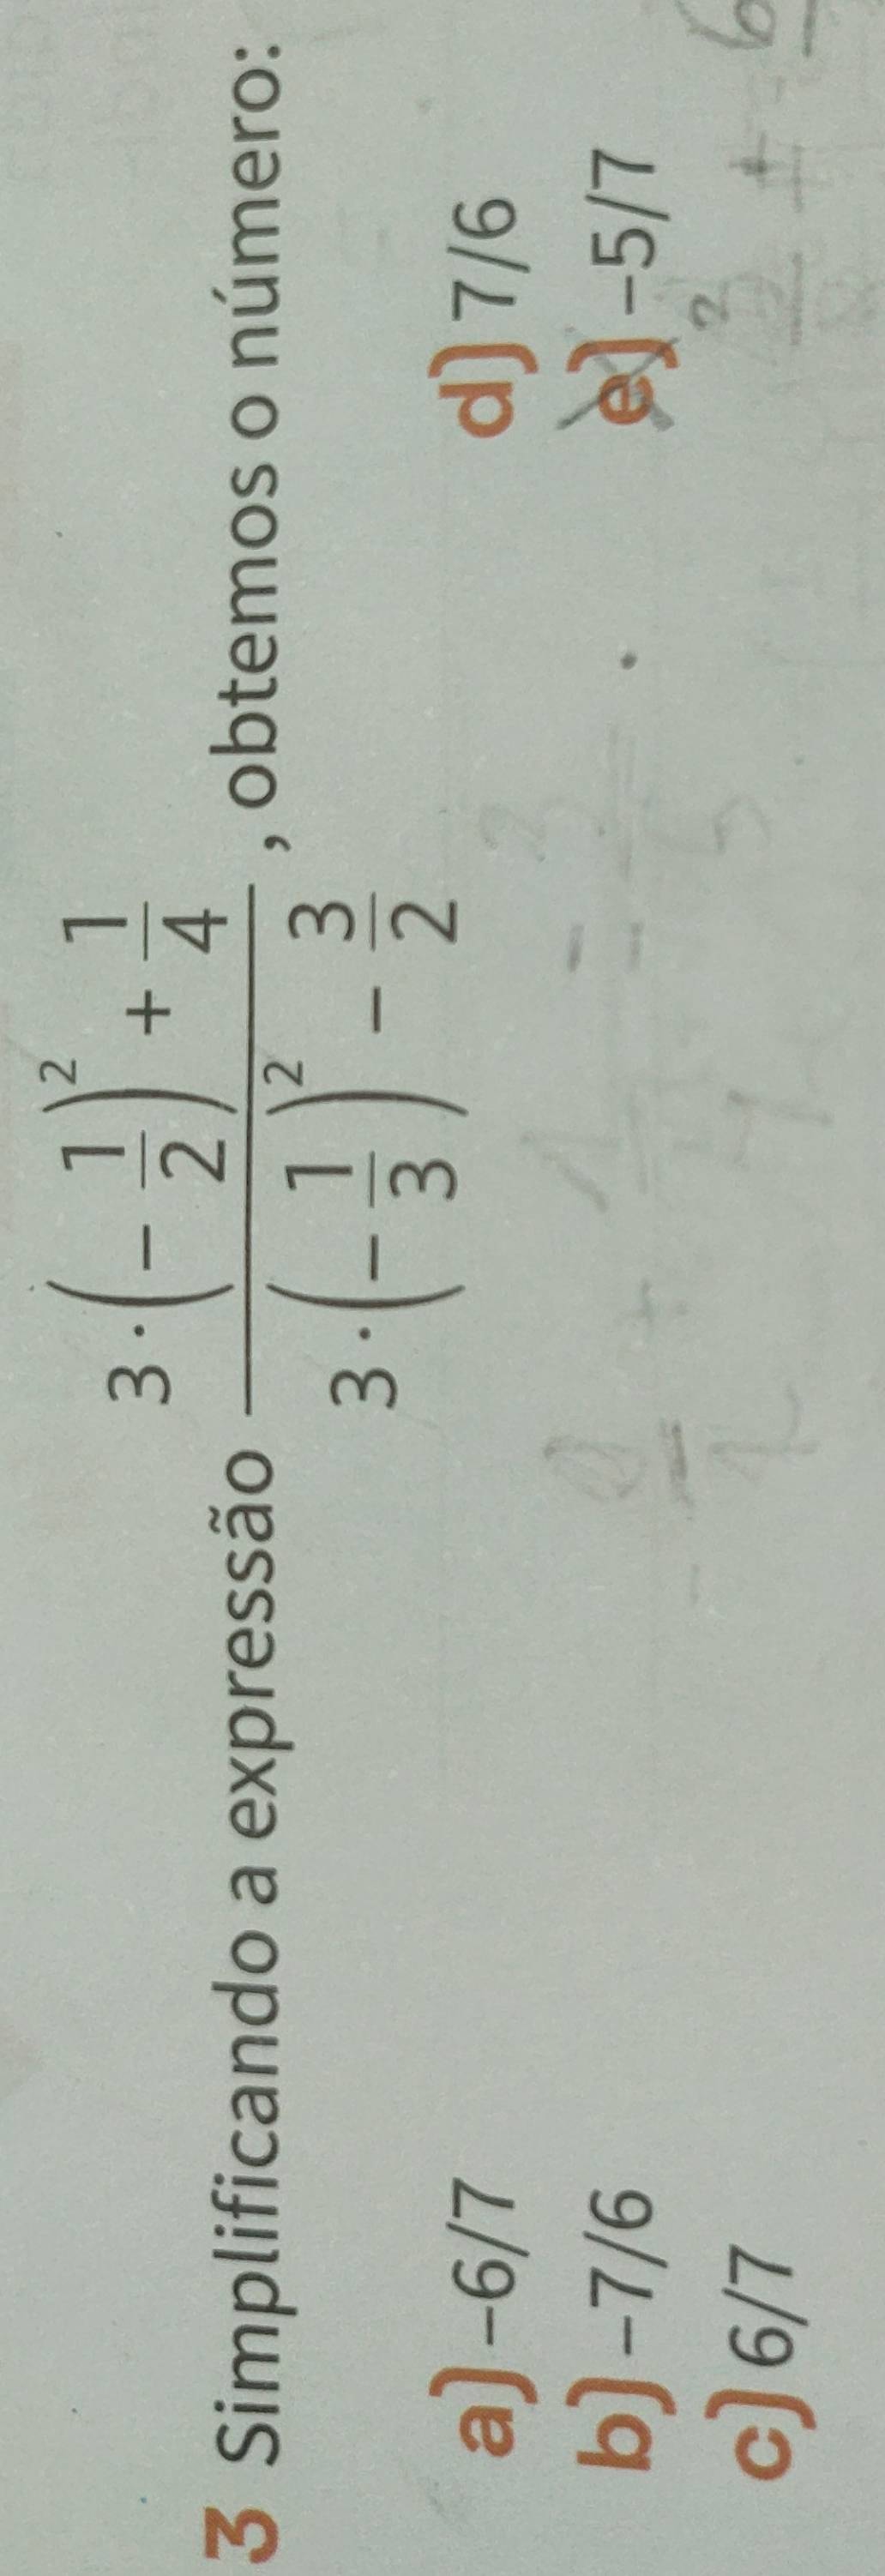 3 Simplificando a expressão \frac{3 \cdot \left(-\frac{1}{2}\right)^2 + \frac{1}{4}}{3 \cdot \left(-\frac{1}{3}\right)^2 - \frac{3}{2}}, obtemos o número:
a) –6/7
b) –7/6
c) 6/7
d) 7/6
e) –5/7